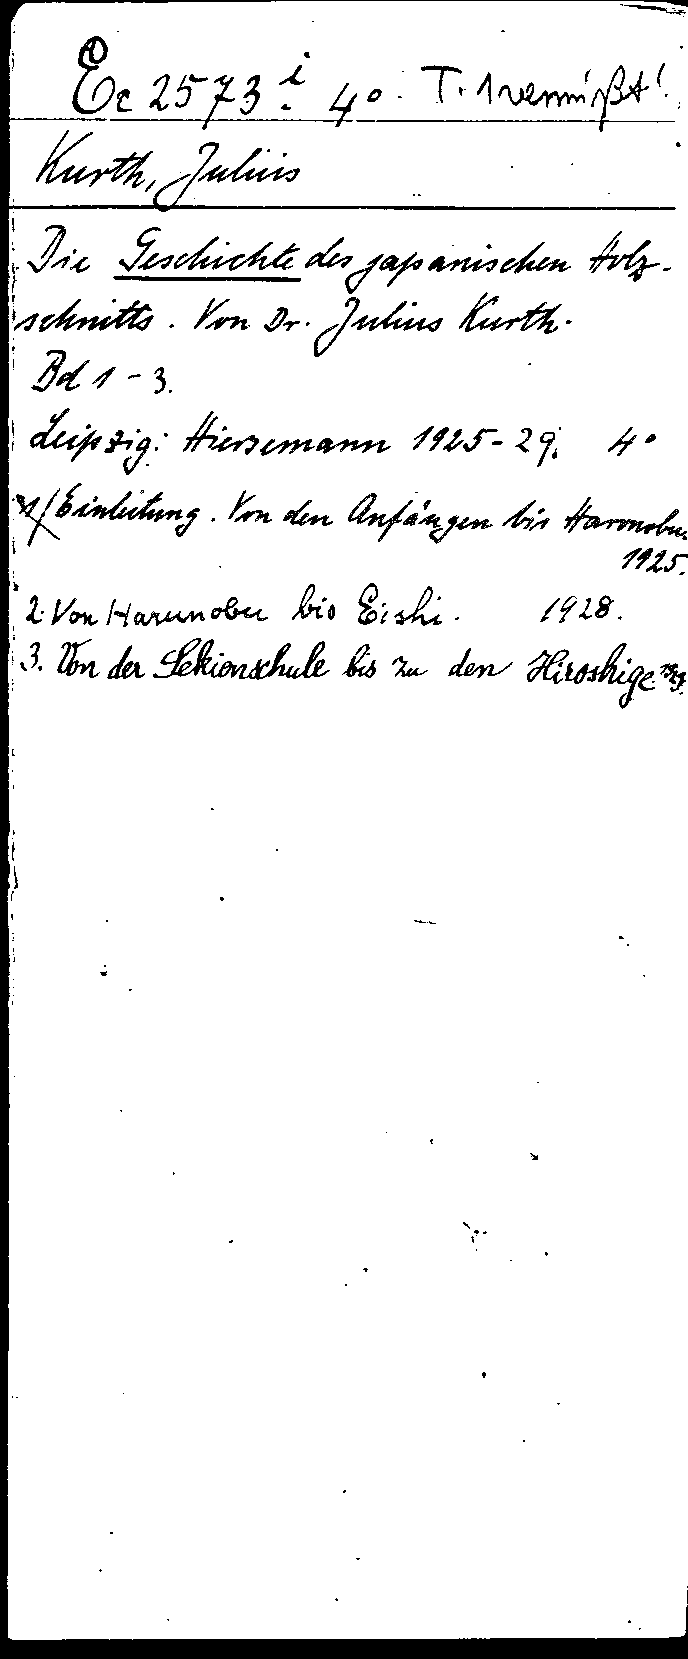 Ec 2573 i. 4° T. 1 vermißt!
Kurth, Julius
Die Geschichte des japanischen Holz-
schnitts. Von Dr. Julius Kurth.
Bd 1-3.
Leipzig: Hiersemann 1925-29. 4°
1/ Einleitung. Von den Anfängen bis Haronobu.
1925.
2. Von Harunobu bis Eishi. 1928.
3. Von der Sekienschule bis zu den Hiroshige. 1929.